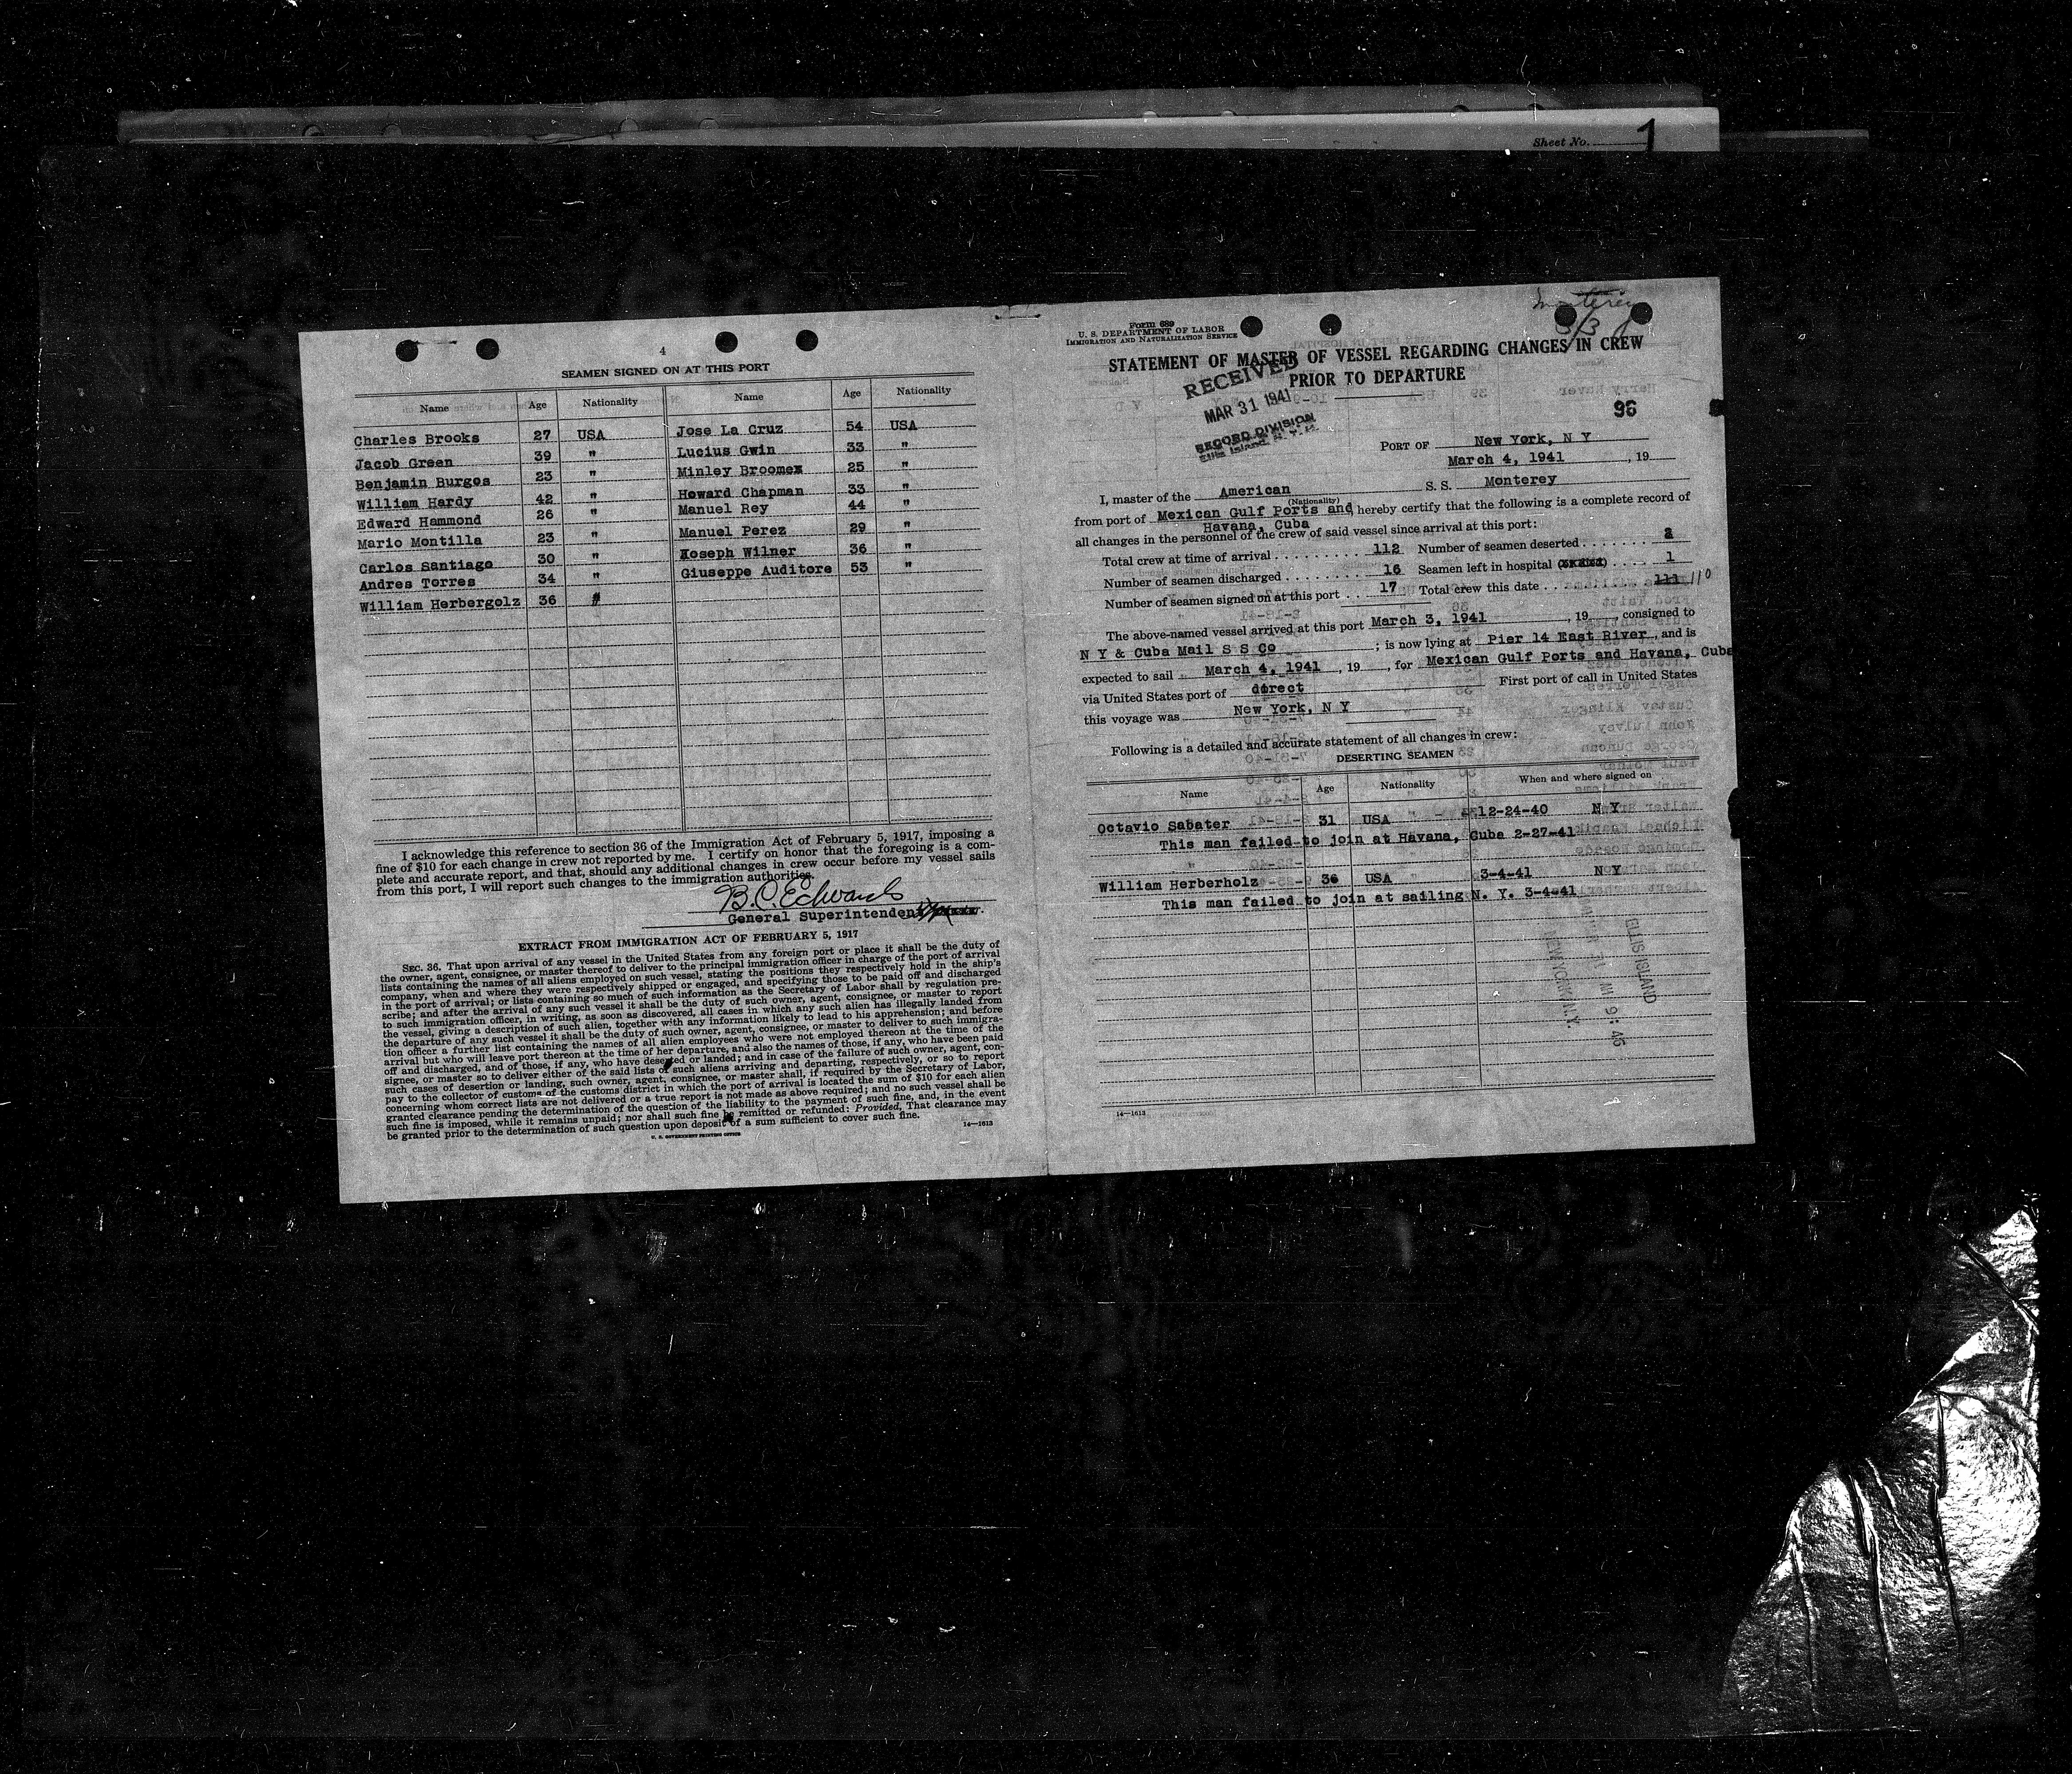 Sheet No. 1
4
SEAMEN SIGNED ON AT THIS PORT
Name Age Nationality Name Age Nationality
Charles Brooks 27 USA Jose La Cruz 54 USA
Jacob Green 39 " Lucius Gwin 33 "
Benjamin Burgos 23 " Minley Broomex 25 "
William Hardy 42 " Howard Chapman 33 "
Edward Hammond 26 " Manuel Rey 44 "
Mario Montilla 23 " Manuel Perez 29 "
Carlos Santiago 30 " Xoseph Wilner 36 "
Andres Torres 34 " Giuseppe Auditore 53 "
William Herbergolz 36 "
I acknowledge this reference to section 36 of the Immigration Act of February 5, 1917, imposing a
fine of $10 for each change in crew not reported by me. I certify on honor that the foregoing is a com-
plete and accurate report, and that, should any additional changes in crew occur before my vessel sails
from this port, I will report such changes to the immigration authorities.
B.C. Edwards
General Superintendent
EXTRACT FROM IMMIGRATION ACT OF FEBRUARY 5, 1917
SEC. 36. That upon arrival of any vessel in the United States from any foreign port or place it shall be the duty of
the owner, agent, consignee, or master thereof to deliver to the principal immigration officer in charge of the port of arrival
lists containing the names of all aliens employed on such vessel, stating the positions they respectively hold in the ship's
company, when and where they were respectively shipped or engaged, and specifying those to be paid off and discharged
in the port of arrival; or lists containing so much of such information as the Secretary of Labor shall by regulation pre-
scribe; and after the arrival of any such vessel it shall be the duty of such owner, agent, consignee, or master to report
to such immigration officer, in writing, as soon as discovered, all cases in which any such alien has illegally landed from
the vessel, giving a description of such alien, together with any information likely to lead to his apprehension; and before
the departure of any such vessel it shall be the duty of such owner, agent, consignee, or master to deliver to such immigra-
tion officer a further list containing the names of all alien employees who were not employed thereon at the time of the
arrival but who will leave port thereon at the time of her departure, and also the names of those, if any, who have been paid
off and discharged, and of those, if any, who have deserted or landed; and in case of the failure of such owner, agent, con-
signee, or master so to deliver either of the said lists of such aliens arriving and departing, respectively, or so to report
such cases of desertion or landing, such owner, agent, consignee, or master shall, if required by the Secretary of Labor,
pay to the collector of customs of the customs district in which the port of arrival is located the sum of $10 for each alien
concerning whom correct lists are not delivered or a true report is not made as above required; and no such vessel shall be
granted clearance pending the determination of the question of the liability to the payment of such fine, and, in the event
such fine is imposed, while it remains unpaid; nor shall such fine be remitted or refunded: Provided, That clearance may
be granted prior to the determination of such question upon deposit of a sum sufficient to cover such fine.
U. S. GOVERNMENT PRINTING OFFICE 14—1613
Monterey
3/3
Form 689
U. S. DEPARTMENT OF LABOR
IMMIGRATION AND NATURALIZATION SERVICE
STATEMENT OF MASTER OF VESSEL REGARDING CHANGES IN CREW
PRIOR TO DEPARTURE
RECEIVED
MAR 31 1941
RECORD DIVISION
Ellis Island, N. Y. H.
96
PORT OF New York, N Y
March 4, 1941, 19
I, master of the American S. S. Monterey
(Nationality)
from port of Mexican Gulf Ports and hereby certify that the following is a complete record of
Havana, Cuba
all changes in the personnel of the crew of said vessel since arrival at this port:
Total crew at time of arrival 112 Number of seamen deserted 2
Number of seamen discharged 16 Seamen left in hospital 1
Number of seamen signed on at this port 17 Total crew this date 111 110
The above-named vessel arrived at this port March 3, 1941, 19, consigned to
N Y & Cuba Mail S S Co; is now lying at Pier 14 East River, and is
expected to sail March 4, 1941, 19, for Mexican Gulf Ports and Havana, Cuba
via United States port of direct First port of call in United States
this voyage was New York, N Y
Following is a detailed and accurate statement of all changes in crew:
DESERTING SEAMEN
Name Age Nationality When and where signed on
Octavio Sabater 31 USA 12-24-40 N Y
This man failed to join at Havana, Cuba 2-27-41
William Herberholz 36 USA 3-4-41 N Y
This man failed to join at sailing N. Y. 3-4-41
ELLIS ISLAND
9:45
NEW YORK N.Y.
14—1613